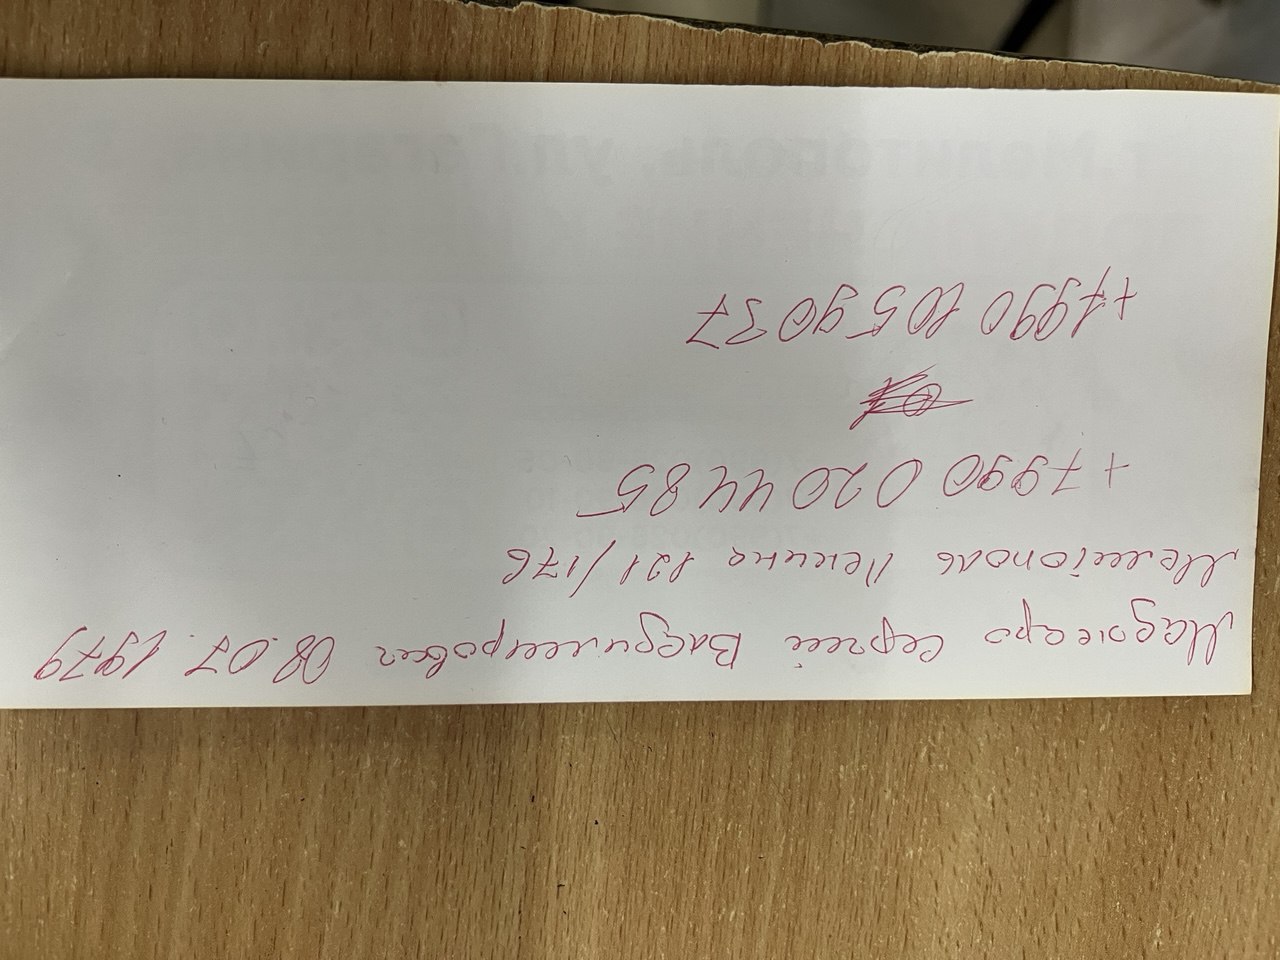 Маджаро Сергей Владимирович 08.07.1979
Мелитополь Ленина 121/176
+7990 0204485
+7990 1059037